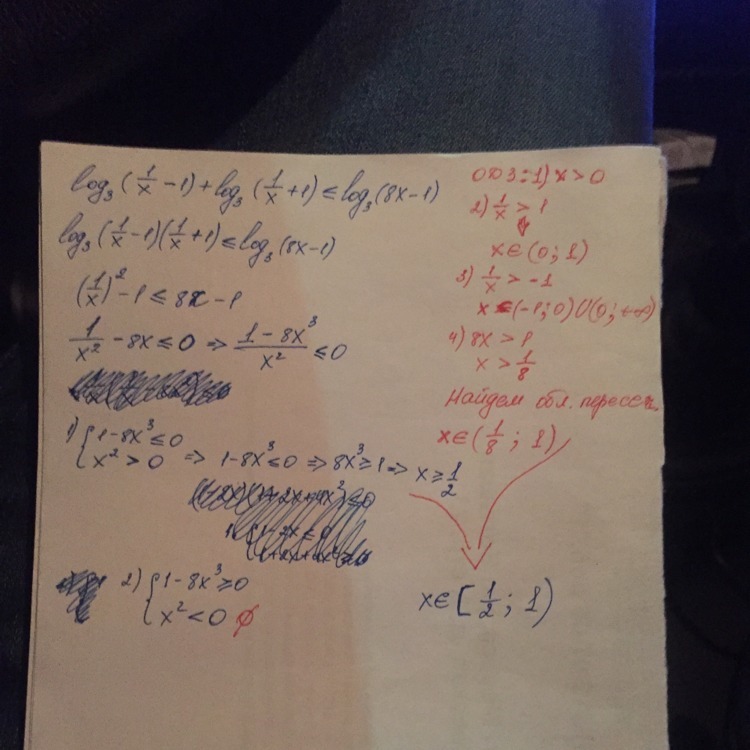 log₃(1/x - 1) + log₃(1/x + 1) ≤ log₃(8x - 1)
log₃(1/x - 1)(1/x + 1) ≤ log₃(8x - 1)
(1/x)² - 1 ≤ 8x - 1
1/x² - 8x ≤ 0 ⇒ (1 - 8x³)/x² ≤ 0
1) { 1 - 8x³ ≤ 0
x² > 0 ⇒ 1 - 8x³ ≤ 0 ⇒ 8x³ ≥ 1 ⇒ x ≥ 1/2
2) { 1 - 8x³ ≥ 0
x² < 0 ∅
ОДЗ: 1) x > 0
2) 1/x > 1
x ∈ (0; 1)
3) 1/x > -1
x ∈ (-1; 0) ∪ (0; +∞)
4) 8x > 1
x > 1/8
Найдем обл. пересеч.
x ∈ (1/8; 1)
x ∈ [1/2; 1)